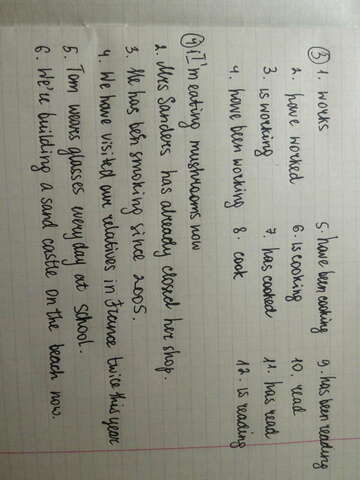 ③ 1. works 5. have been cooking 9. has been reading
2. have worked 6. is cooking 10. read
3. is working 7. has cooked 11. has read
4. have been working 8. cook 12. is reading
④ 1 I'm eating mushrooms now
2. Mrs Sanders has already closed her shop.
3. He has been smoking since 2005.
4. We have visited our relatives in France twice this year
5. Tom wears glasses everyday at school.
6. We're building a sand castle on the beach now.